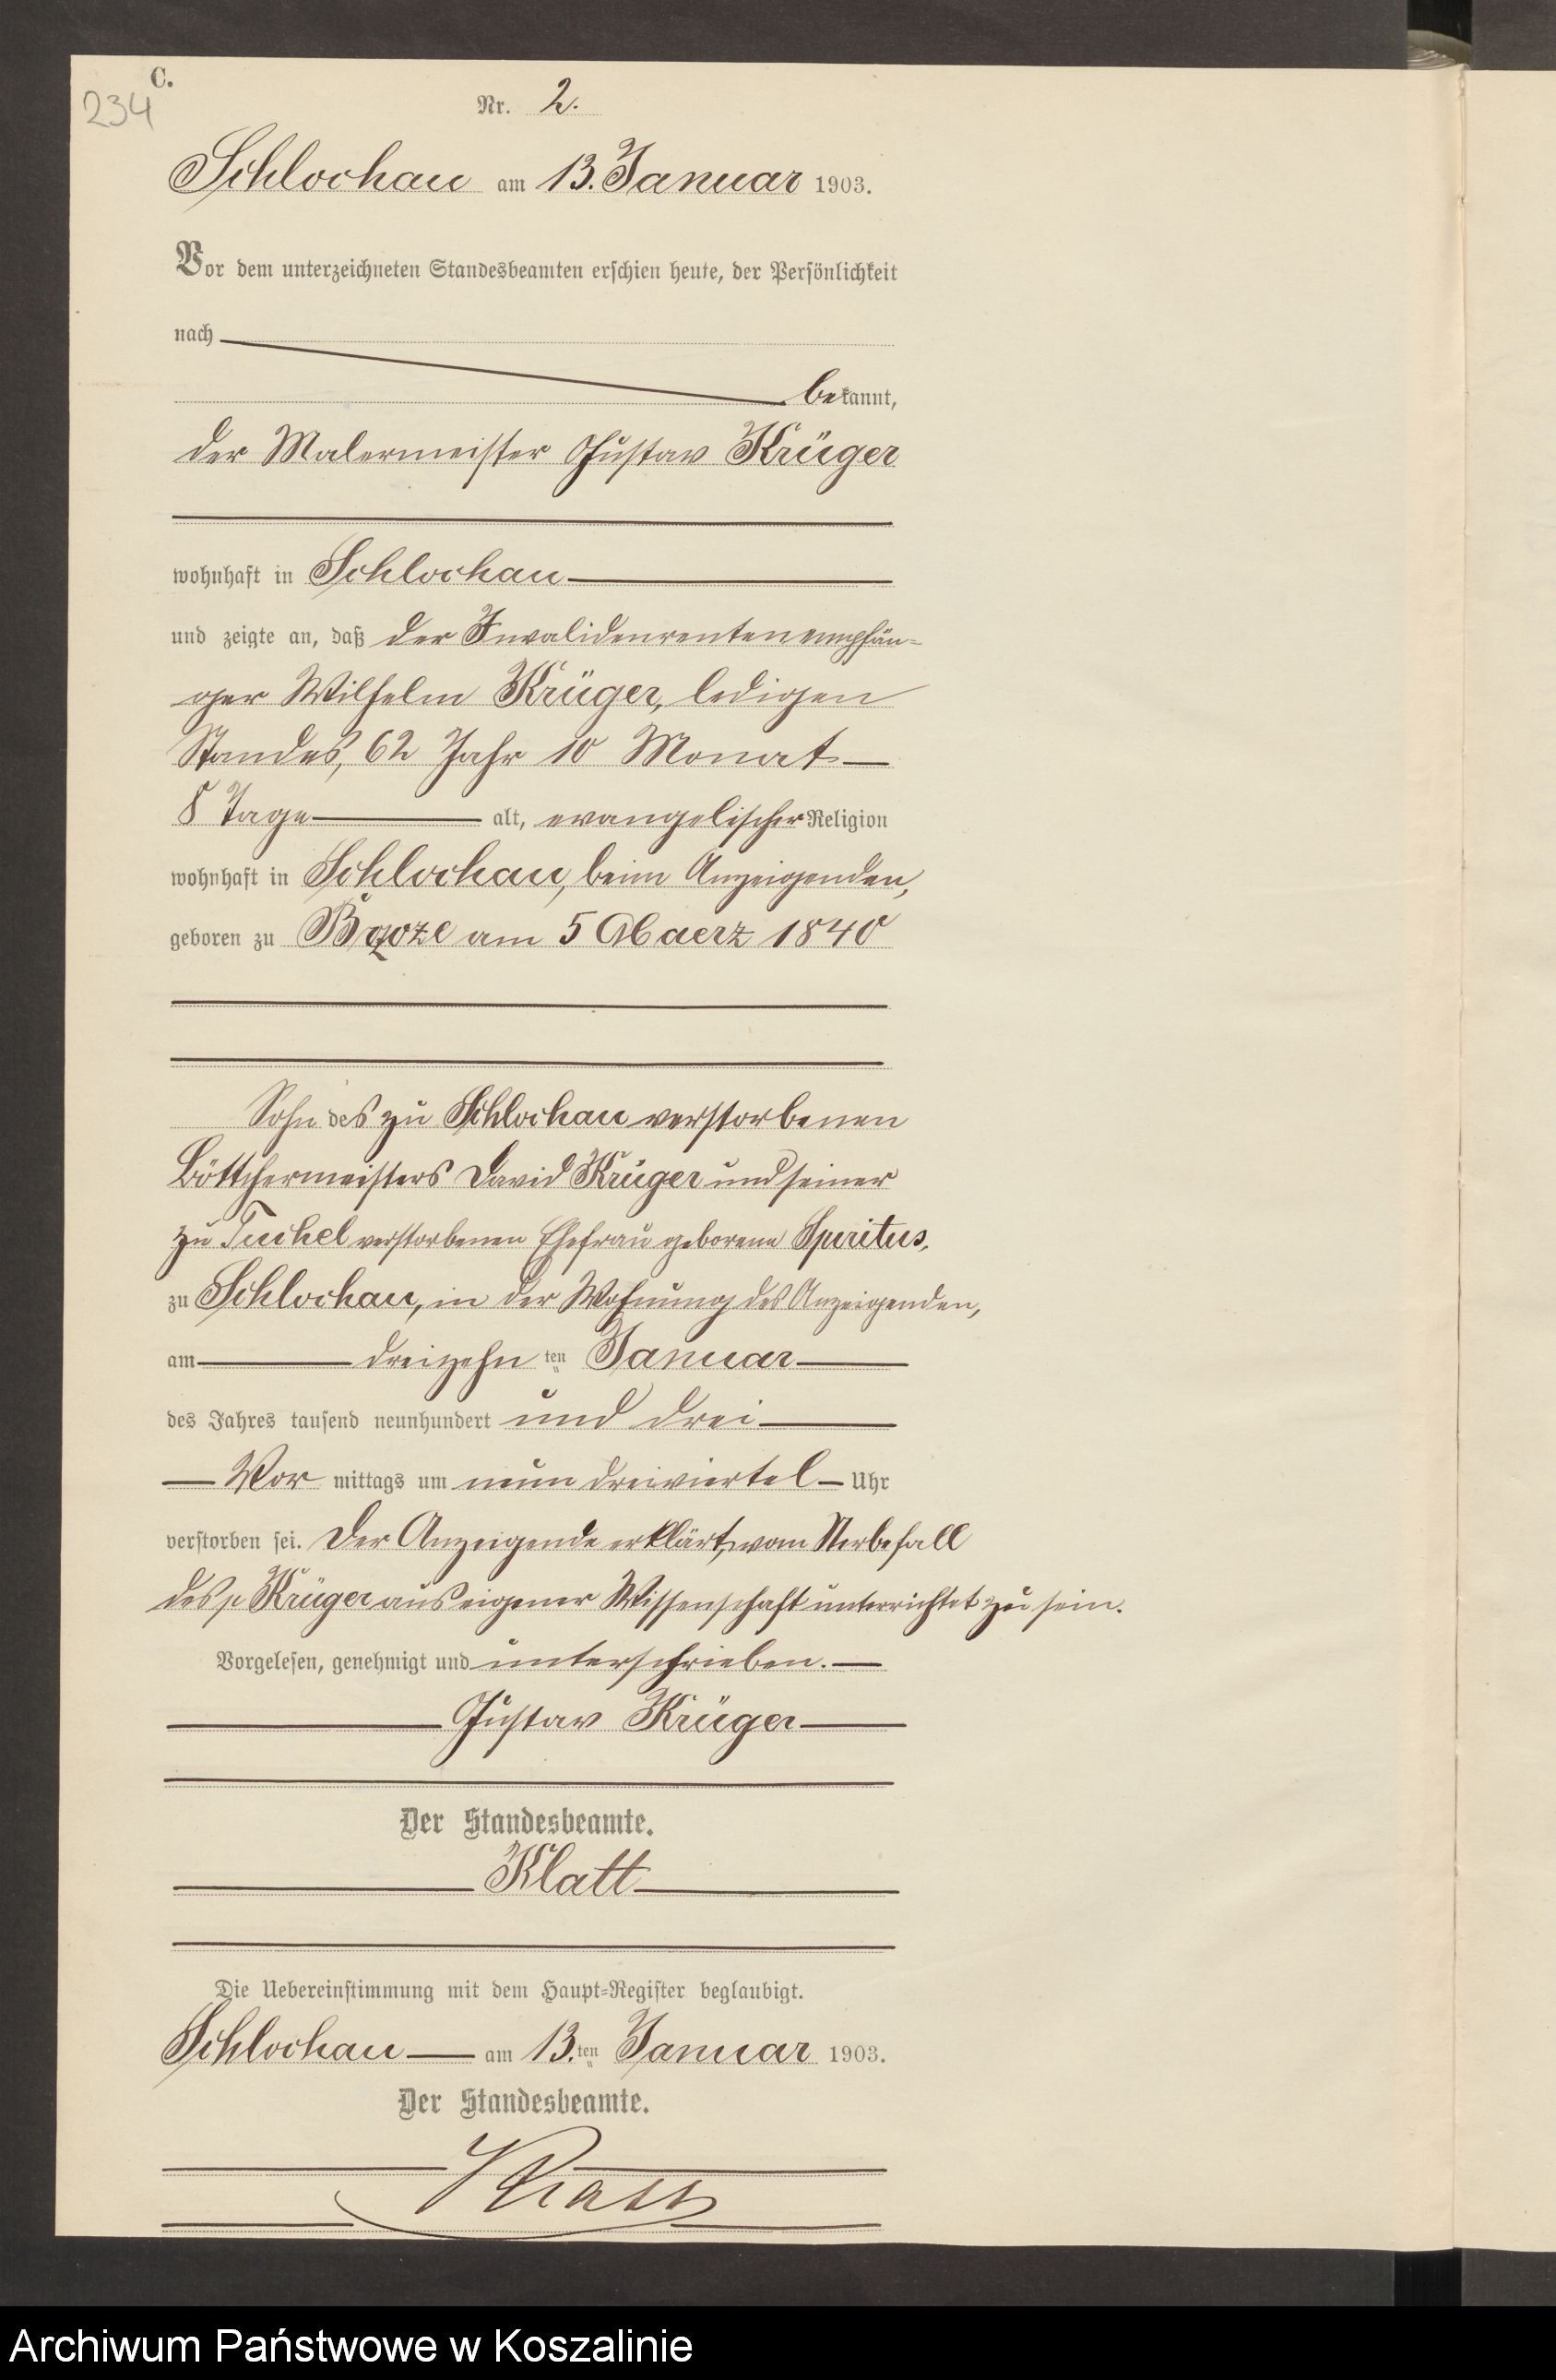 C.
234
Nr. 2.
Schlochau am 13. Januar 1903.
Vor dem unterzeichneten Standesbeamten erschien heute, der Persönlichkeit
nach
bekannt,
der Malermeister Gustav Krüger
wohnhaft in Schlochau
und zeigte an, daß der Invalidenrentenempfän-
ger Wilhelm Krüger, ledigen
Standes, 62 Jahr 10 Monat
8 Tage alt, evangelischer Religion
wohnhaft in Schlochau, beim Anzeigenden,
geboren zu am 5 Maerz 1840
Sohn des zu Schlochau verstorbenen
Böttchermeisters David Krüger und seiner
zu Tuchel verstorbenen Ehefrau geborene Spiritus,
zu Schlochau, in der Wohnung des Anzeigenden,
am dreizehnten Januar
des Jahres tausend neunhundert und drei
Vormittags um neun dreiviertel Uhr
verstorben sei. Der Anzeigende erklärt, vom Sterbefall
des p Krüger aus eigener Wissenschaft unterrichtet zu sein.
Vorgelesen, genehmigt und unterschrieben.
Gustav Krüger
Der Standesbeamte.
Klatt
Die Uebereinstimmung mit dem Haupt-Register beglaubigt.
Schlochau am 13.ten Januar 1903.
Der Standesbeamte.
Klatt
Archiwum Państwowe w Koszalinie